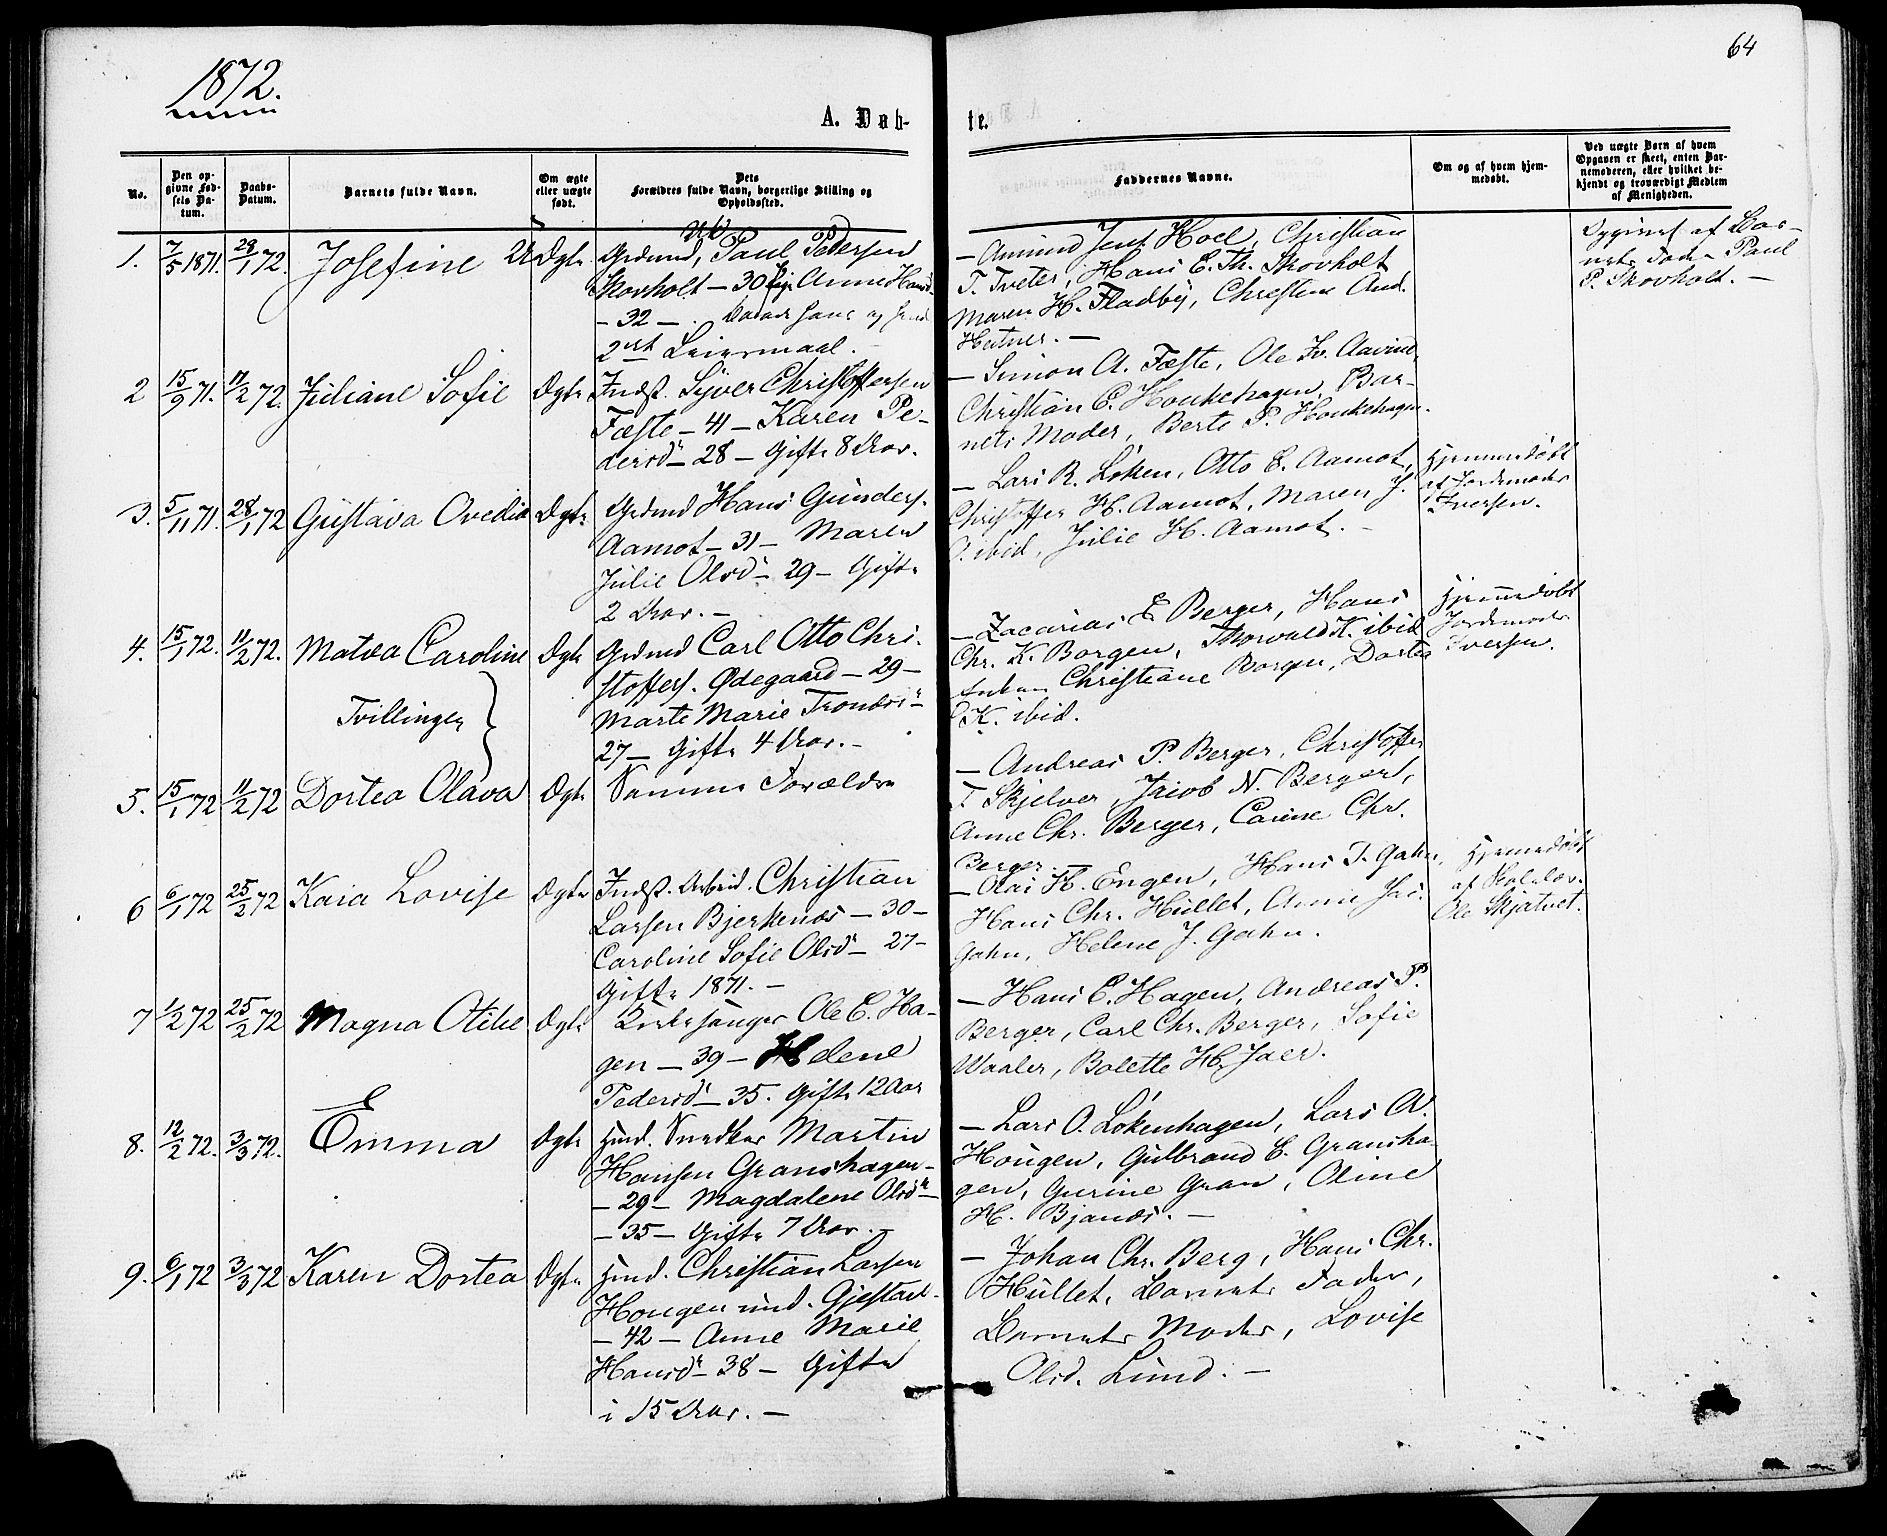 64
1872.
A. Døb-
te.
No.
Den op-
givne Fød-
sels Da-
tum.
Daabs-
Datum.
Barnets fulde Navn.
Om ægte
eller uægte
født.
Dets
Forældres fulde Navn, borgerlige Stilling og
Opholdssted.
Faddernes Navne.
Om og af hvem hjem-
medøbt.
Ved uægte Børn af hvem
Opgaven er skeet, enten Bar-
nemoderen, eller hvilket be-
kjendt og troværdigt Medlem
af Menigheden.
1. 7/5 1871. 28/1 72. Josefine U Ægte
Grdmd, Paul Pedersen
Skovholt – 30 Anne Hansd
– 32 – .
2det Leiermaal. –
– Amund Jens Hoel, Christian
T. Tveter, Hans E. Th. Skovholt
Maren H. Fladby, Christine And.
–
Opgivet af Bar-
nets Fader Paul
P. Skovholt. –
2 15/9 71. 11/2 72. Juliane Sofie Ægte
Indst. Syver Christoffersen
Fæste – 41 – Karen Pe-
dersdr – 28 – Gifte 8 Aar.
– Simon A. Fæste, Ole
Christian E. Houkehagen, Bar-
nets Moder, Berte P. Houkehagen.
3. 5/11 71. 28/1 72 Gustava Ovedia Ægte
Grdmd Hans Gunders.
Aamot – 31 – Maren
Julie Olsdr – 29 – Gifte
2 Aar. –
– Lars R. Løken, Otto E. Aamot,
Christoffer H. Aamot, Maren J.
O. ibid, Julie H. Aamot. –
Hjemmedøbt
af Jordemoder
Iversen.
4. 15/1 72. 11/2 72. Matea Caroline Ægte
Tvillinger
Grdmd Carl Otto Chri-
stoffers. Ødegaard – 29 –
Marte Marie Trondsdr
27 – Gifte 4 Aar. –
– Zacarias E Berger, Hans
Chr. K. Borgen, Thorvald K. ibid
Christiane Borgen, Dortea
K. ibid.
Hjemmedøbt
Jordemoder
Iversen.
5. 15/1 72 11/2 72 Dortea Olava Ægte
Samme Forældre
– Andreas P. Berger, Christoffer
T. Skjelver, Jacob N. Berger,
Anne Chr. Berger, Carine Chr.
Berger.
6 6/1 72 25/2 72 Kaia Lovise Ægte
Indst. Arbeid. Christian
Larsen Bjerkenæs – 30 –
Caroline Sofie Olsdr – 27 –
Gifte 1871. –
– Olai H. Engen, Hans T. Gahn,
Hans Chr. Hullet, Anne Jac.
Gahn, Helene J. Gahn.
Hjemmedøbt
af Skolelær.
Ole Skjatvet.
7 1/2 72 25/2 72 Magna Otilie Ægte
Kirkesanger Ole E. Ha-
gen – 39 – Helene
Pedersdr – 35. Gifte 12 Aar
– Hans E. Hagen, Andreas P.
Berger, Carl Chr. Berger, Sofie
Waaler, Bolette H. Jaer.
8. 12/2 72. 3/3 72. Emma Ægte
Hmd. Snedker Martin
Hansen Granshagen –
– 29 – Magdalene Olsdr –
– 35 – Gifte 7 Aar. –
– Lars O. Løkenhagen, Lars A.
Hougen, Gulbrand E. Gransha-
gen, Gurine Gran, Oline
H. Bjanæs. –
9. 6/1 72 3/3 72 Karen Dortea Ægte
Hmd. Christian Larsen
Hougen und. Gjestad.
– 42 – Anne Marie
Hansdr – 38 – Gifte
i 15 Aar. –
– Johan Chr. Berg, Hans Chr.
Hullet, Barnets Fader,
Barnets Moder, Lovise
Olsd. Lund. –